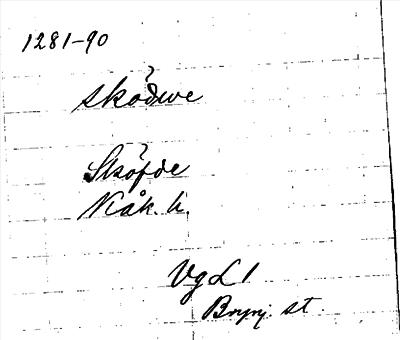 1281-90
sködwe
Sköfde
Kåk. h.
VgL 1
Brynj. st.